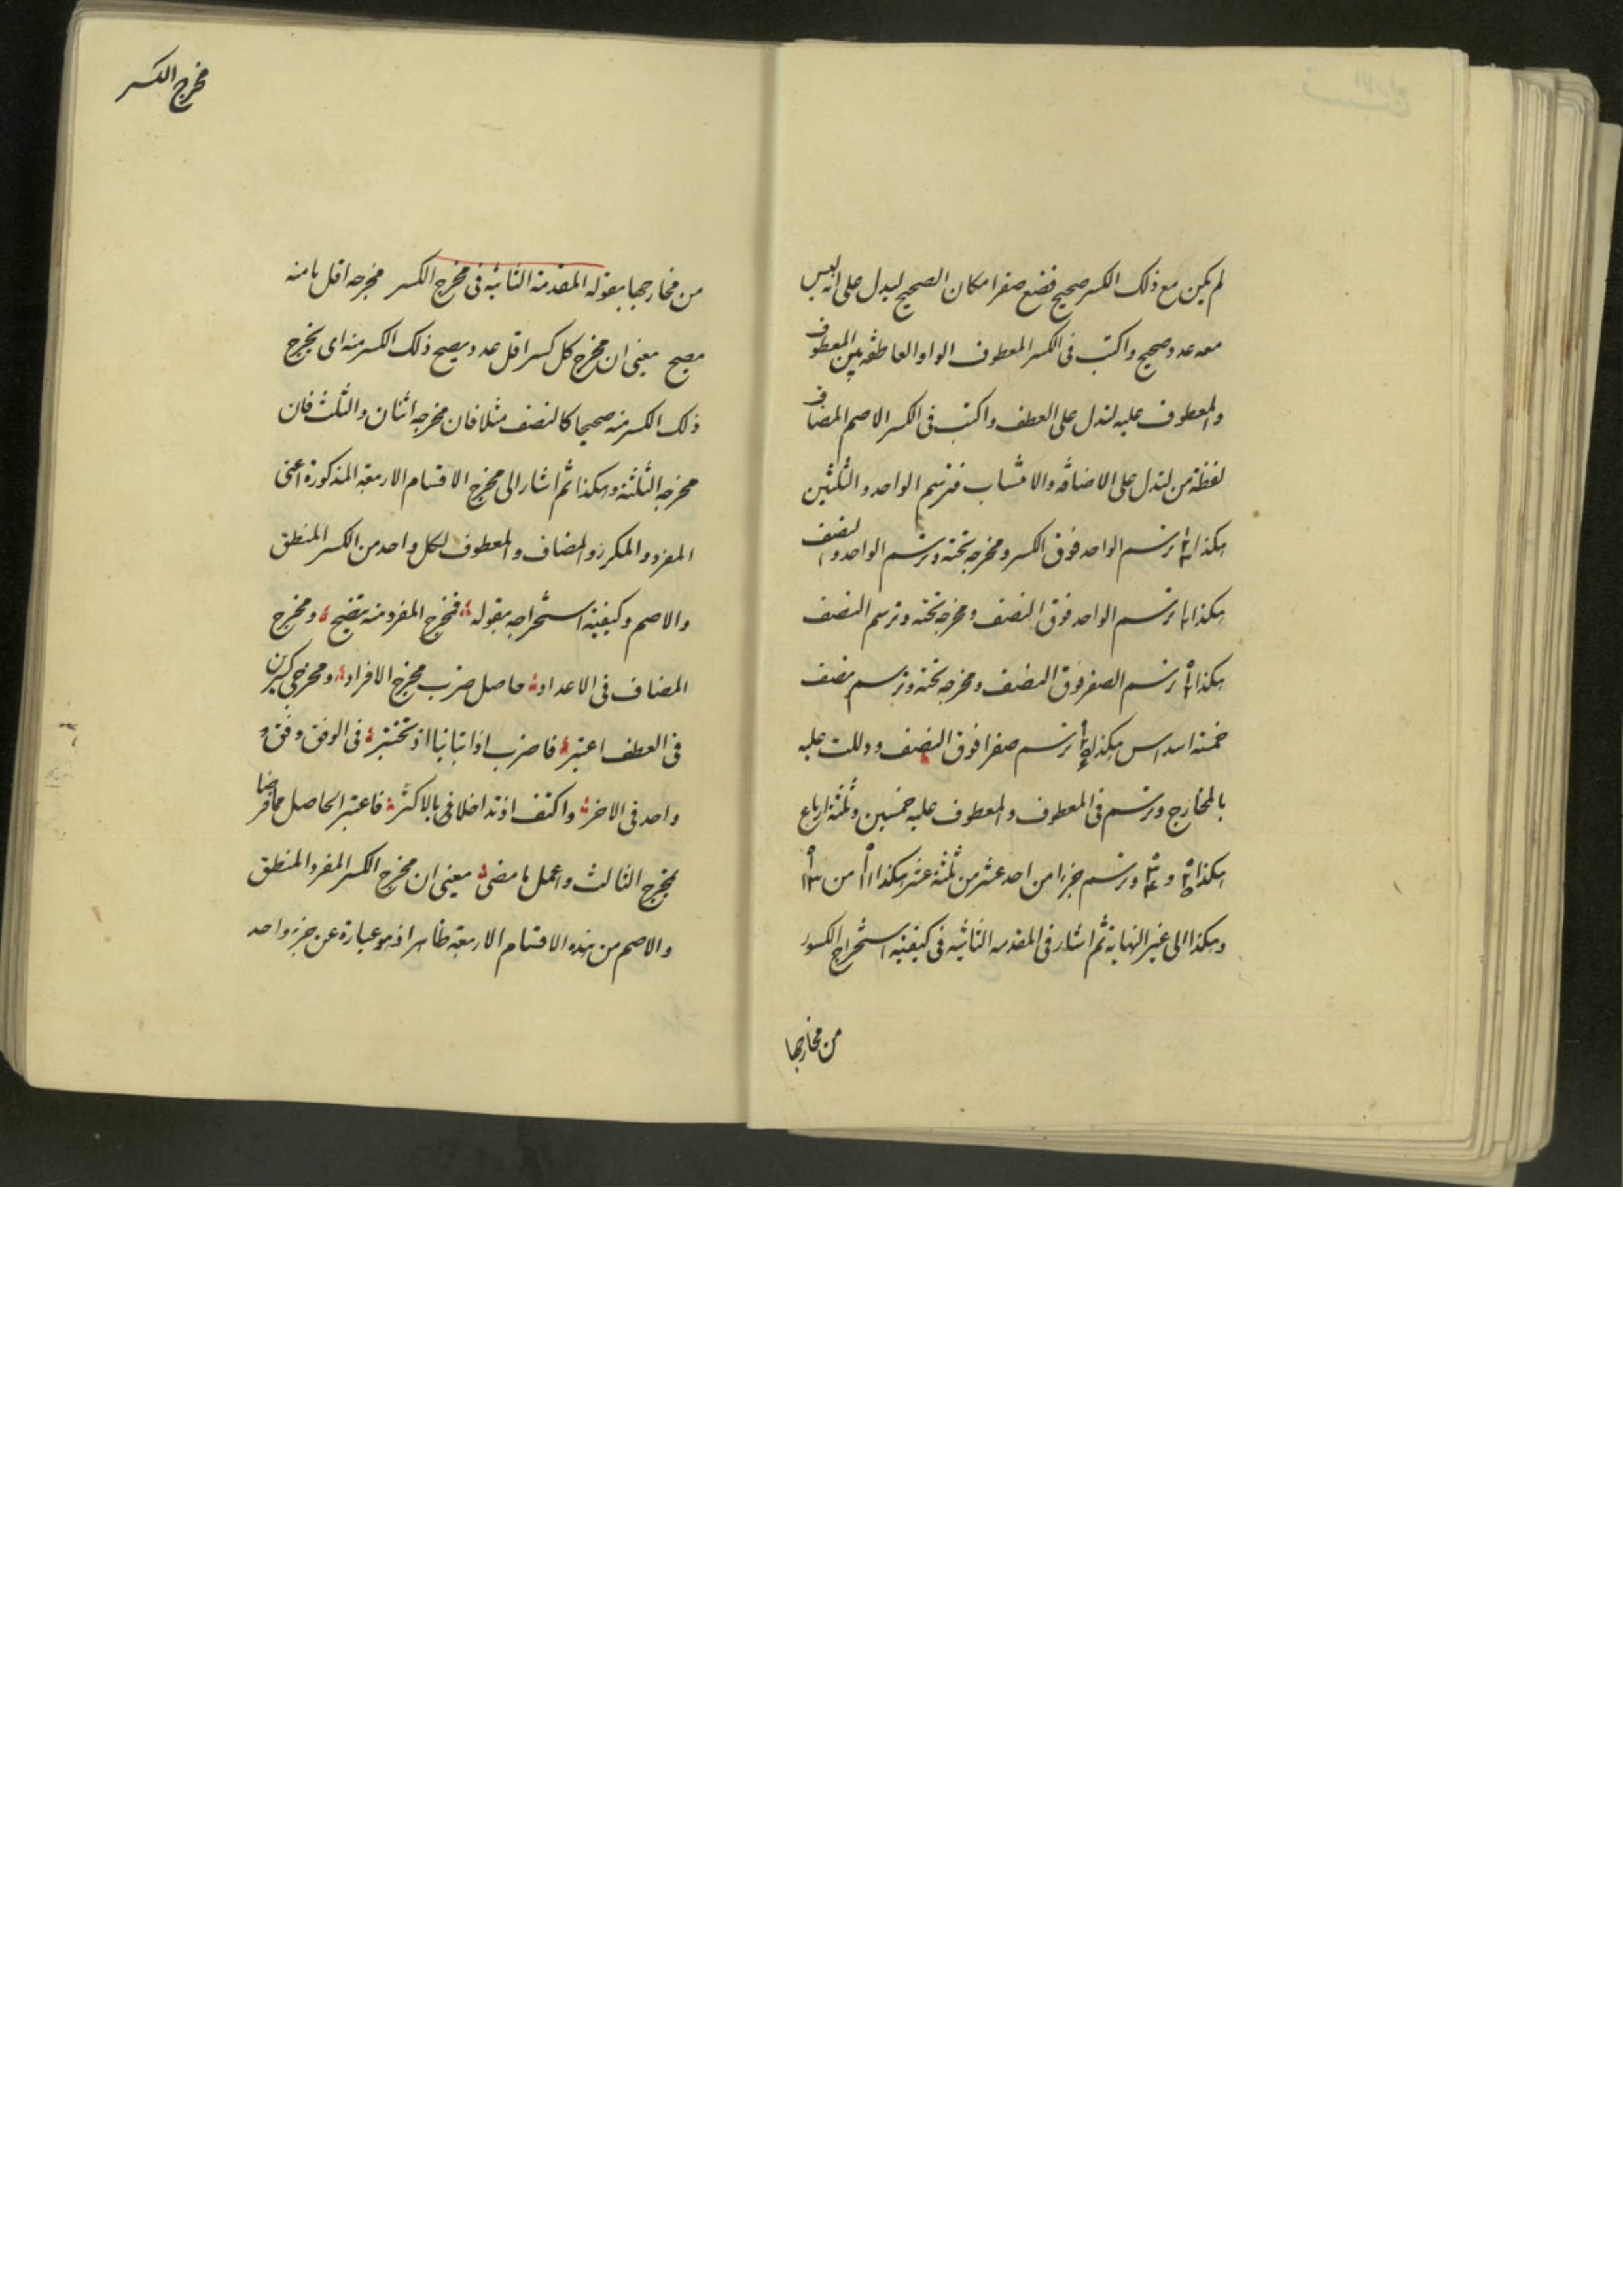 لم يكن مع ذلك الكسر صحيح فضع صفرا مكان الصحيح ليدل على انه ليس
معه عدد صحيح واكتب فى الكسر المعطوف الواو العاطفه بين المعطوف
والمعطوف عليه لتدل على العطف واكتب فى الكسر الاصم المضاف
لفظة من لتدل على الاضافه والانتساب فترسم الواحد والثلثين
هكذا ترسم الواحد فوق الكسر ومخرجه تحته وترسم الواحد والنصف
هكذا ترسم الواحد فوق النصف ومخرجه تحته وترسم النصف
هكذا ترسم الصفر فوق النصف ومخرجه تحته وترسم نصف
خمسة اسداس هكذا ترسم صفرا فوق النصف ودللت عليه
بالمخارج وترسم فى المعطوف والمعطوف عليه خمسين وثلثة ارباع
هكذا و وترسم جزءا من احد عشر من ثلثة عشر هكذا من
وهكذا الى غير النهاية ثم اشار فى المقدمه الثانيه فى كيفية استخراج الكسور
من مخارجها
مخرج الكسر
من مخارجها بقوله المقدمة الثانيه فى مخرج الكسر مخرجه اقل ما منه
يصح يعنى ان مخرج كل كسر اقل عدد يصح ذلك الكسر منه اى يخرج
ذلك الكسر منه صحيحا كالنصف مثلا فان مخرجه اثنان والثلث فان
مخرجه الثلثة وهكذا ثم اشار الى مخرج الاقسام الاربعة المذكورة اعنى
المفرد والمكرر والمضاف والمعطوف لكل واحد من الكسر المنطق
والاصم وكيفية استخراجه بقوله فمخرج المفرد منه يتضح ومخرج
المضاف فى الاعداد حاصل ضرب مخرج الافراد ومخرجى كسرين
فى العطف اعتبر فاضرب اذا تباينا اذ تختبر فى الوفق وفق
واحد فى الاخر واكتف اذ تداخلا فى بالاكثر فاعتبر الحاصل مما فرضا
بمخرج الثالث واعمل ما مضى يعنى ان مخرج الكسر المفرد المنطق
والاصم من هذه الاقسام الاربعة ظاهر اذ هو عبارة عن جزء واحد